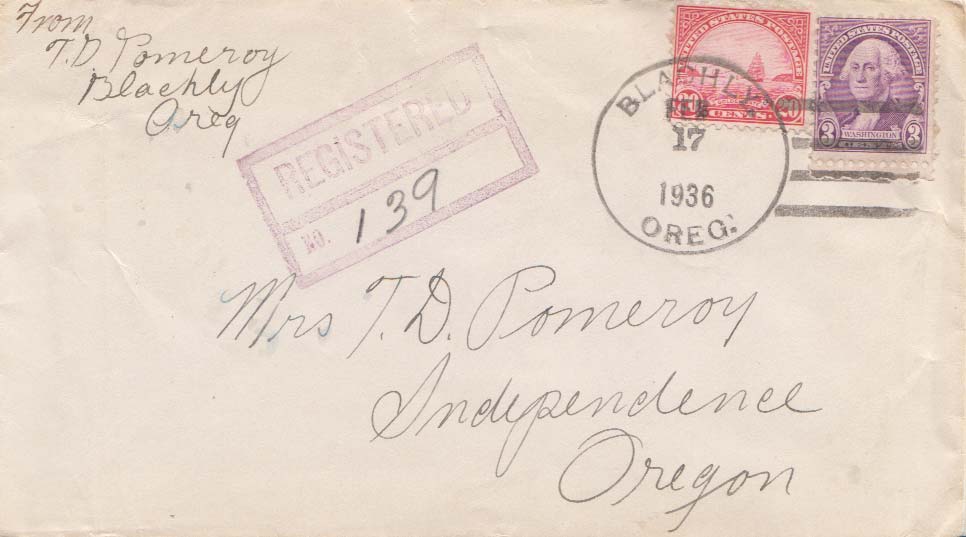 From
T.D. Pomeroy
Blachly
Oreg
REGISTERED
NO. 139
UNITED STATES POSTAGE
20 CENTS 20
UNITED STATES POSTAGE
3 WASHINGTON 3
BLACHLY
FEB
17
1936
OREG.
Mrs T. D. Pomeroy
Independence
Oregon